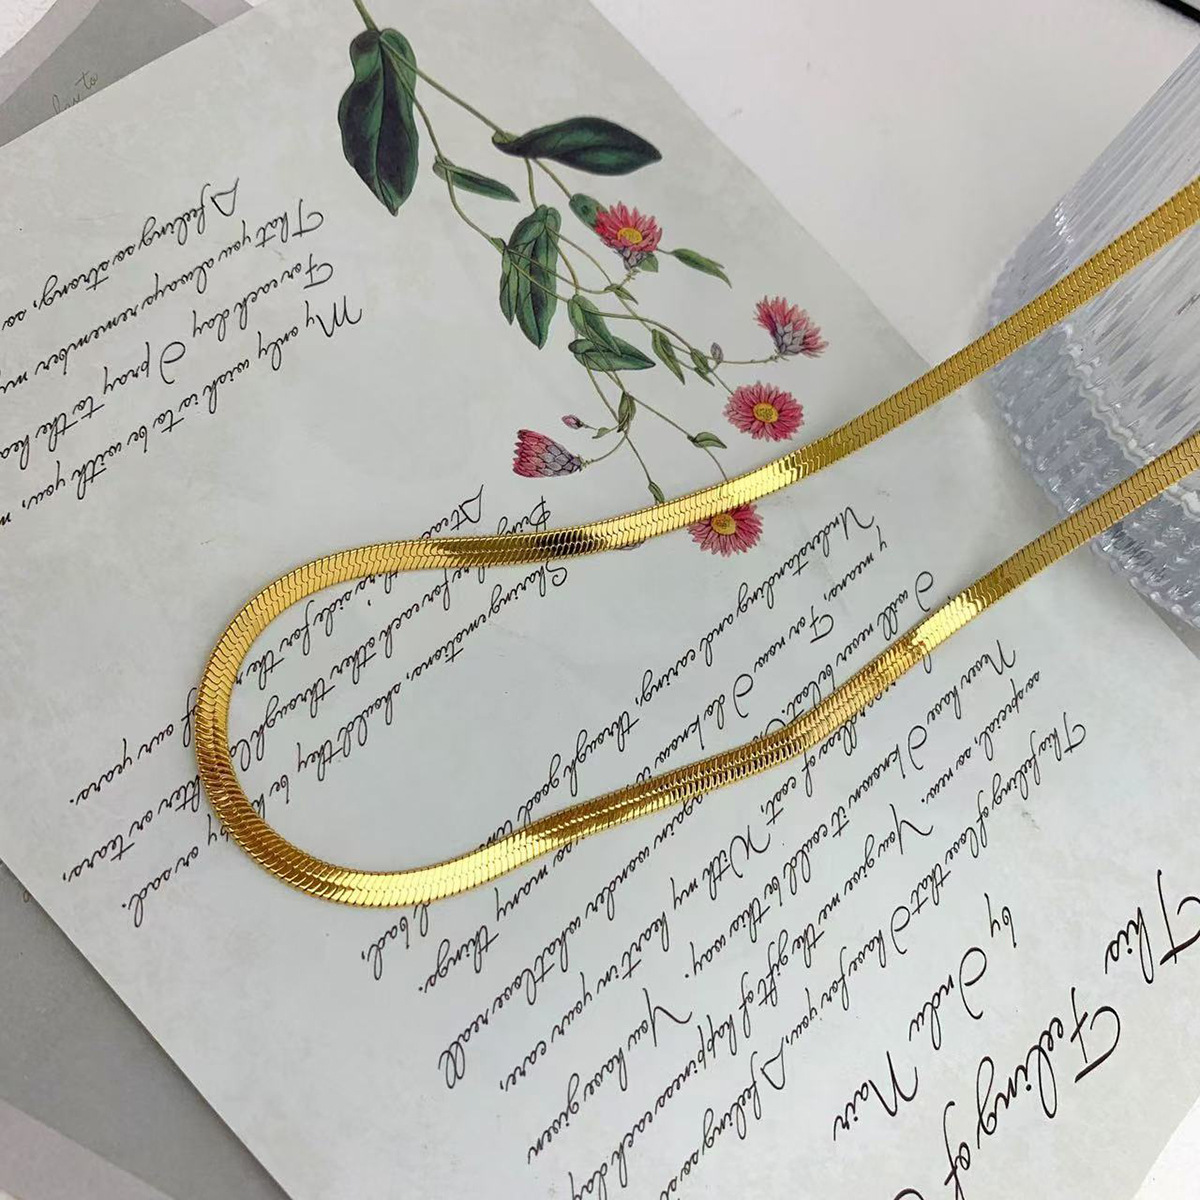 This Feeling of
by Indu Nair
This feeling of love that I have for you, A feeling so
so special, so new. You give me the gift of happiness each day
Never have I known it could be this way. You have given
of cost. With my heart in your care,
I will never be lost. again wonder what love reall
y means, For now I do know many things.
Understanding and caring, through good bad,
Sharing emotions, should they be or sad.
for each other through or tears,
side for the of our years.
My only wish is to be with you,
For each day I pray to the hea
That you always remember my
A feeling so strong, so